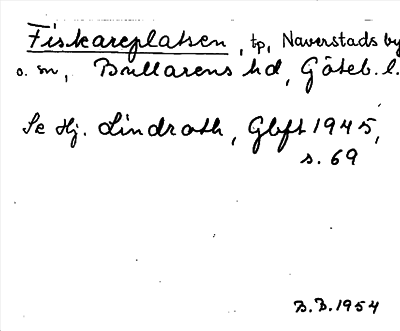 Fiskareplatsen, tp, Naverstads by
o. sn, Bullarens hd, Göteb. l.
Se Hj. Lindroth, Gbft 1945,
s. 69
B.B. 1954